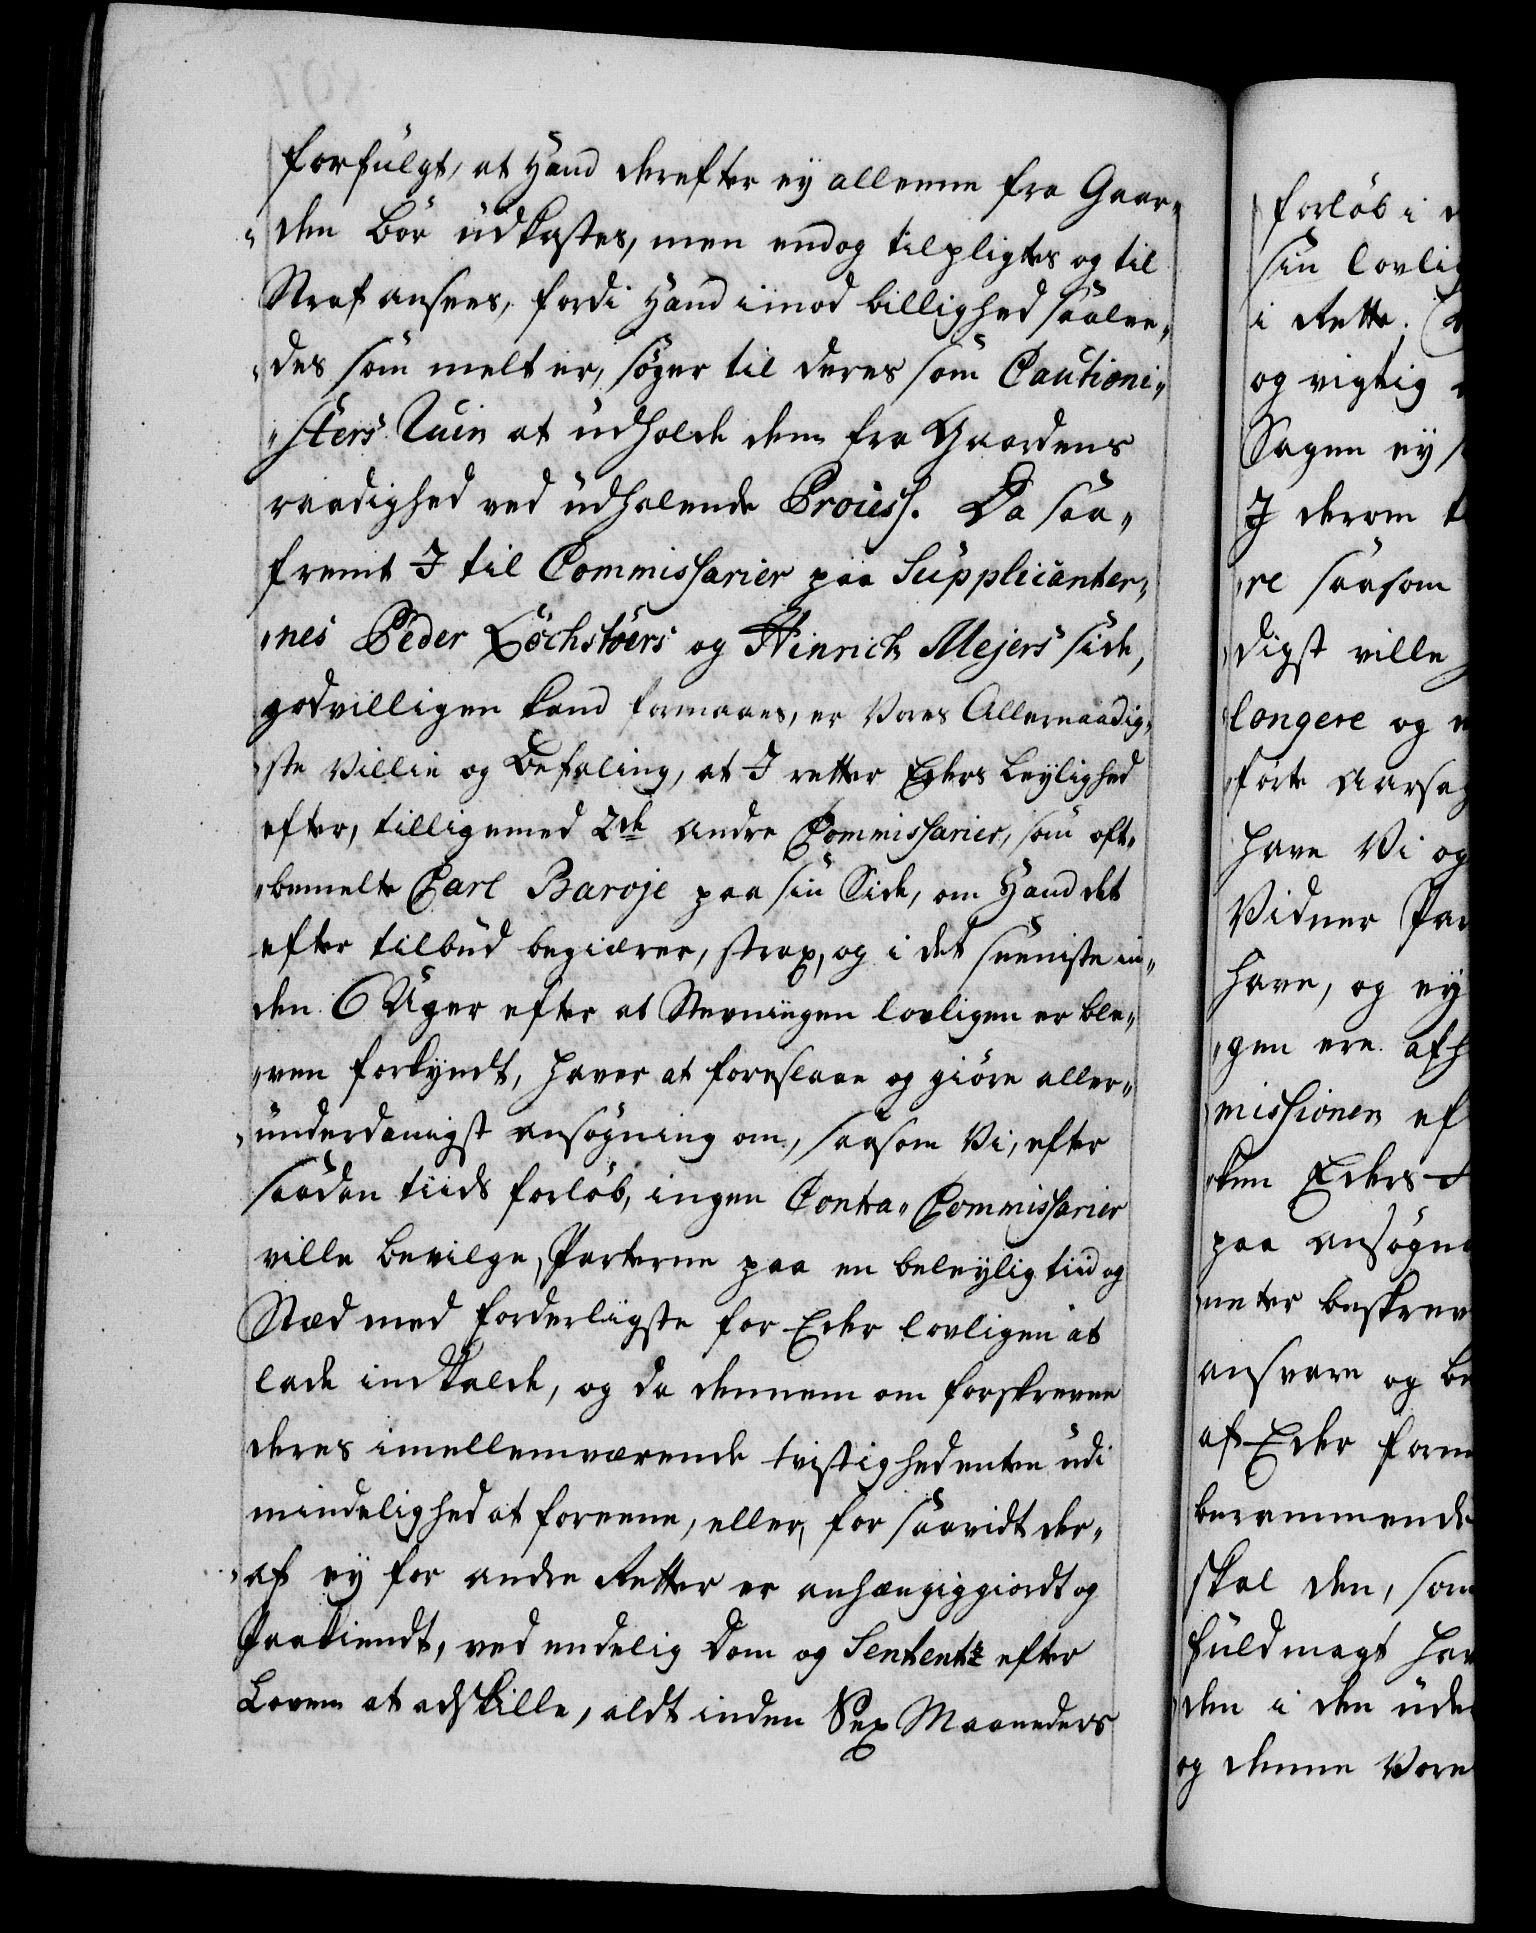 forfulgt, at Hand derefter ey allenne fra Gaar„
„den bör udkastes, men endog tilpligtes og til
Straf ansees, fordi Hand imod billighed saalee„
„des som melt er, söger til deres som Cautioni„
„sters Ruin at udholde dem fra Gaardens
raadighed ved udholende Process. Da saa„
fremt I til Commissarier paa Supplicanter„
„nes Peder Löchstöers og Hinrich Mejers side,
godvilligen kand formaaes, er Vores Allernaadig„
„ste Villie og Befaling, at I retter Eders Leylighed
efter, tilligemed 2de andre Commissarier, som oft„
„bemelte Carl Baroje paa sin Side, om Hand det
efter tilbud begiærer, strax, og i det seeniste in„
den 6 Uger efter at Stevningen lovligen er ble„
„ven forkyndt, haver at foreslaae og giöre aller„
„underdanigst ansögning om, saasom Vi, efter
saadan tiids forlöb, ingen Contra„Commissarier
ville bevilge, Parterne paa en beleylig tiid og
Stæd med forderligste for Eder lovligen at
lade indkalde, og da dennem om forskrevne
deres imellemværende tvistigheder enten udi
mindelighed at foreene, eller, for saavidt der„
„af ey for andre Retter er anhængiggiordt og
Paakiendt, ved endelig Dom og Sententz efter
Loven at adskille, aldt inden Sex Maaneders
forlöb i
sin lovlig
i Rette.
og rigtig
Sagen ey
I derom
„re saasom
„digst ville
længere og
„förte Aarsag
have Vi og
Vidner Par
have, og ey
„gen ere afh
missionen ef
„ken Eders
paa ansögn
menter beskrev
ansvare og be
af Eder form
berammende
skal den, som
fuldmagt hav
den i den ude
og denne Vore